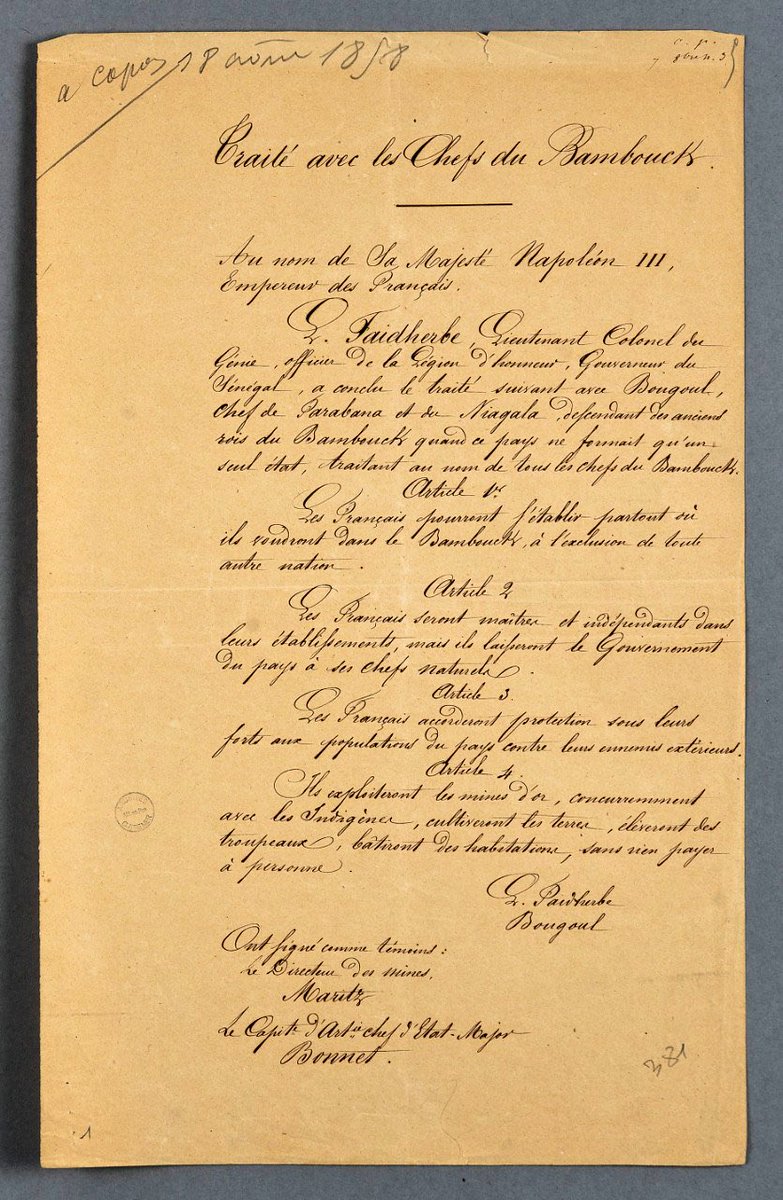 a copier 18 août 1858
Traité avec les Chefs du Bambouck.
Au nom de Sa Majesté Napoléon III,
Empereur des Français.
L. Faidherbe, Lieutenant Colonel du
Génie, officier de la Légion d'honneur, Gouverneur du
Sénégal, a conclu le traité suivant avec Bougoul,
chef de Farabana et du Niagala, descendant des anciens
rois du Bambouck quand ce pays ne formait qu'un
seul état, traitant au nom de tous les chefs du Bambouck.
Article 1er
Les Français pourront s'établir partout où
ils voudront dans le Bambouck, à l'exclusion de toute
autre nation.
Article 2
Les Français seront maîtres et indépendants dans
leurs établissements, mais ils laisseront le Gouvernement
du pays à ses chefs naturels.
Article 3.
Les Français accorderont protection sous leurs
forts aux populations du pays contre leurs ennemis extérieurs.
Article 4.
Ils exploiteront les mines d'or, concurremment
avec les Indigènes, cultiveront les terres, élèveront des
troupeaux, bâtiront des habitations, sans rien payer
à personne.
L. Faidherbe
Bougoul
Ont signé comme témoins :
Le Directeur des mines,
Maritz
Le Capite d'Artie chef d'Etat-Major
Bonnet.
381
1